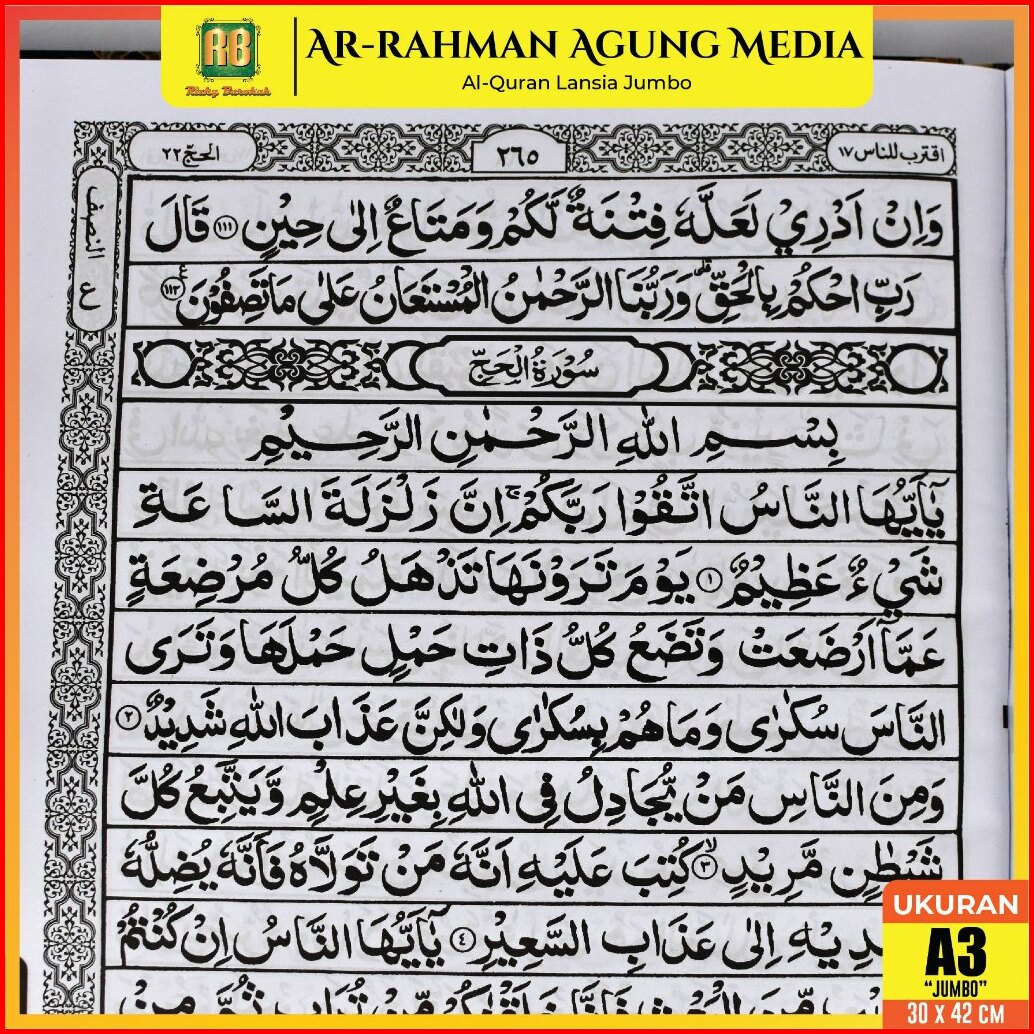 RB
Rizky Barokah
AR-RAHMAN AGUNG MEDIA
Al-Quran Lansia Jumbo
اقترب للناس ١٧
٢٦٥
الحجّ ٢٢
النصف
ع
وَاِنْ اَدْرِيْ لَعَلَّهٗ فِتْنَةٌ لَّكُمْ وَمَتَاعٌ اِلٰى حِيْنٍ ١١١ قَالَ
رَبِّ احْكُمْ بِالْحَقِّۗ وَرَبُّنَا الرَّحْمٰنُ الْمُسْتَعَانُ عَلٰى مَا تَصِفُوْنَ ١١٢
سُوْرَةُ الْحَجِّ
بِسْمِ اللهِ الرَّحْمٰنِ الرَّحِيْمِ
يٰٓاَيُّهَا النَّاسُ اتَّقُوْا رَبَّكُمْۚ اِنَّ زَلْزَلَةَ السَّاعَةِ
شَيْءٌ عَظِيْمٌ ١ يَوْمَ تَرَوْنَهَا تَذْهَلُ كُلُّ مُرْضِعَةٍ
عَمَّآ اَرْضَعَتْ وَتَضَعُ كُلُّ ذَاتِ حَمْلٍ حَمْلَهَا وَتَرَى
النَّاسَ سُكٰرٰى وَمَا هُمْ بِسُكٰرٰى وَلٰكِنَّ عَذَابَ اللهِ شَدِيْدٌ ٢
وَمِنَ النَّاسِ مَنْ يُّجَادِلُ فِى اللهِ بِغَيْرِ عِلْمٍ وَّيَتَّبِعُ كُلَّ
شَيْطٰنٍ مَّرِيْدٍ ٣ كُتِبَ عَلَيْهِ اَنَّهٗ مَنْ تَوَلَّاهُ فَاَنَّهٗ يُضِلُّهٗ
ـدِيْهِ اِلٰى عَذَابِ السَّعِيْرِ ٤ يٰٓاَيُّهَا النَّاسُ اِنْ كُنْتُمْ
UKURAN
A3
“JUMBO”
30 X 42 CM